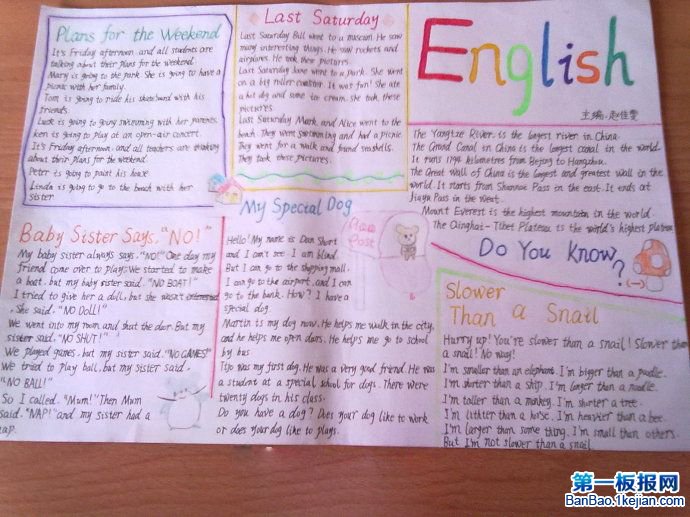 Plans for the Weekend
It's Friday afternoon. and all students are
talking about their plans for the weekend.
Mary is going to the park. She is going to have a
picnic with her family.
Tom is going to ride his skateboard with his
friends.
Luck is going to going swimming with her parents.
ken is going to play at an open-air concert.
It's Friday afternoon. and all teachers are thinking
about their plans for the weekend.
Peter is going to paint his house
Linda is going to go to the beach with her
sister
Last Saturday
Last Saturday Bill went to a museum. He saw
many interesting things. He saw rockets and
airplanes. He took these pictures.
Last Saturday Jane went to a park. She went
on a big roller coaster. It was fun! She ate
a hot dog and some ice cream. she took these
pictures.
Last Saturday Mark and Alice went to the
beach. They went swimming and had a picnic
They went for a walk and friend seashells.
They took these pictures.
English
主编:赵佳雯
The Yangtze River is the largest river in China.
The Grand Canal in China is the longest canal in the world
It runs 1794 kilometres from Beijing to Hangzhou.
The Great Wall of China is the longest and greatest wall in the
world. It starts from Shanhai Pass in the east. It ends at
Jiayu Pass in the west.
Mount Everest is the highest mountain in the world.
The Qinghai-Tibet Plateau is the world's highest plateau
Do You Know?
Baby Sister Says, "NO!"
My baby sister always says. "NO!" One day my
friend come over to play. We started to make
a boat. but my baby sister said. "NO BOAT!"
I tried to give her a doll, but she wasn't interested.
She said. "NO DOLL!"
We went into my room and shut the door. But my
sister said. "NO SHUT!"
We played games. but my sister said. "NO GAMES!"
We tried to play ball, but my sister said.
"NO BALL!"
So I called. "Mum!" Then Mum
said. "NAP!" and my sister had a
nap.
My Special Dog
Hello! My name is Dan Short
and I can't see. I am blind.
But I can go to the shopping mall.
I can go to the airport, and I can
go to the bank. How? I have a
special dog
Martin is my dog now. He helps me walk in the city,
and he helps me open doors. He helps me go to school
by bus
Tijo was my first dog. He was a very good friend. He was
a student at a special school for dogs. There were
twenty dogs in his class.
Do you have a dog? Does your dog like to work
or does your dog like to plays.
Slower
Than a Snail
Hurry up! You're slower than a snail! Slower than
a snail! No way!
I'm smaller than an elephant. I'm bigger than a poodle.
I'm shorter than a ship. I'm larger than a noodle.
I'm taller than a monkey. I'm shorter a tree.
I'm lighter than a horse. I'm heavier than a bee.
I'm larger than some thing. I'm small than others.
But I'm not slower than a snail.
第一板报网
BanBao.1kejian.com